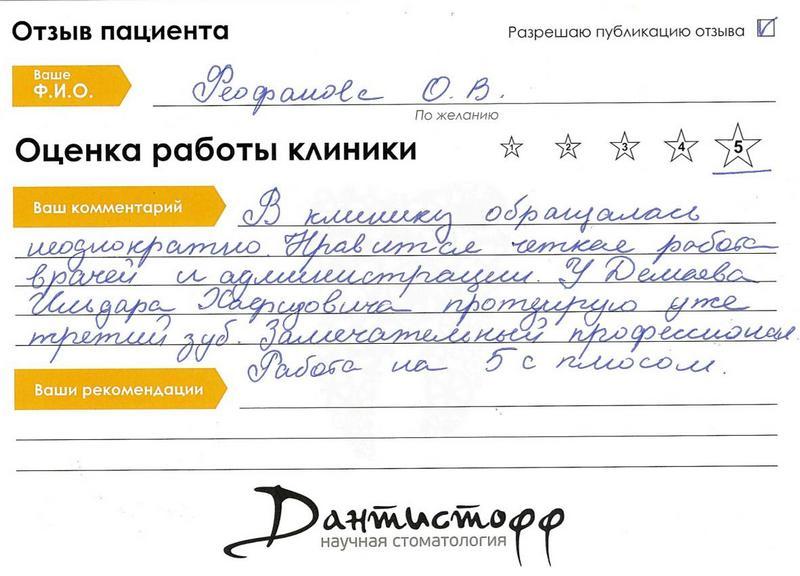 Отзыв пациента
Разрешаю публикацию отзыва
Ваше
Ф.И.О.
Феофанова О.В.
По желанию
Оценка работы клиники
1 2 3 4 5
Ваш комментарий
В клинику обращалась
неоднократно. Нравится четкая работа
врачей и администрации. У Демаева
Ильдара Хафизовича протезирую уже
третий зуб. Замечательный профессионал.
Работа на 5 с плюсом.
Ваши рекомендации
Дантистофф
научная стоматология